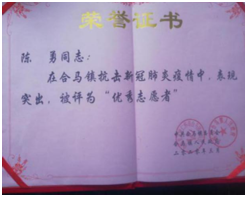 荣誉证书
陈勇同志：
在合马镇抗击新冠肺炎疫情中，表现
突出，被评为“优秀志愿者”